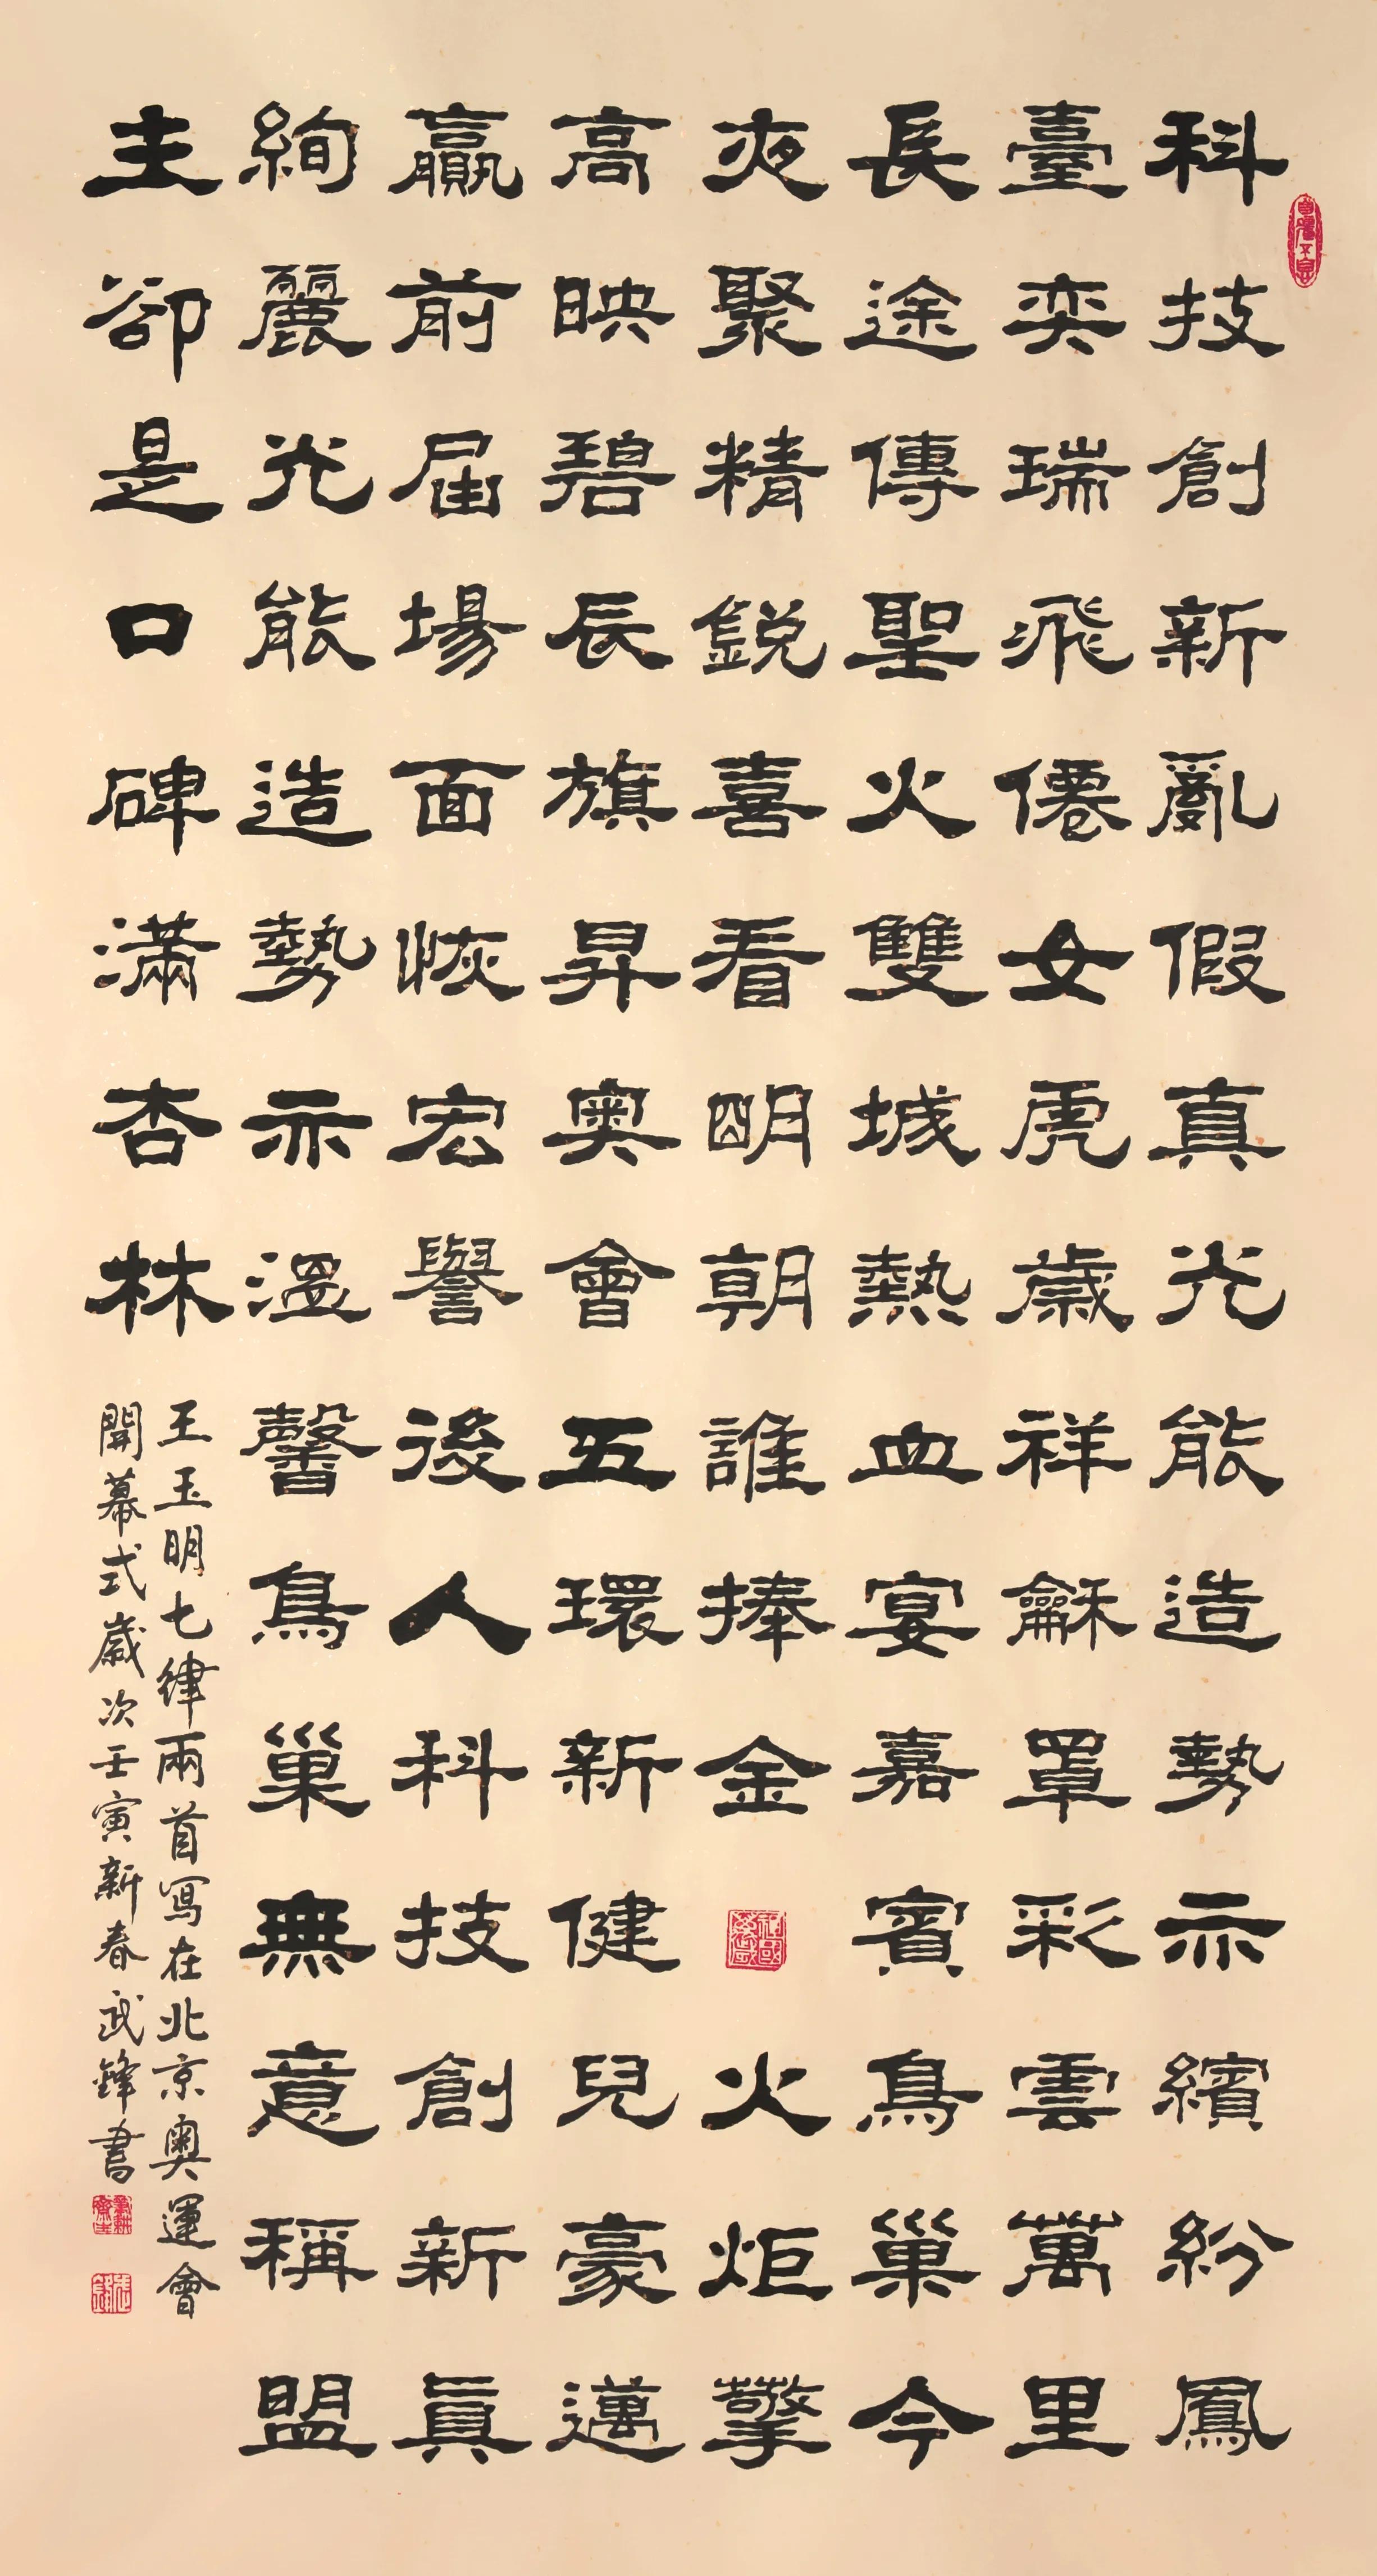 科技創新亂假真光能造勢亦繽紛鳳
臺奕瑞飛僊女虎歲祥龢罩彩雲萬里
長途傳聖火雙城熱血宴嘉賓鳥巢今
夜聚精銳喜看明朝誰捧金火炬擎
高映碧辰旗昇奧會五環新健兒豪邁
贏前屆場面恢宏譽後人科技創新真
絢麗光能造勢亦溫馨鳥巢無意稱盟
主卻是口碑滿杏林
王玉明七律兩首寫在北京奧運會
開幕式歲次壬寅新春武鋒書